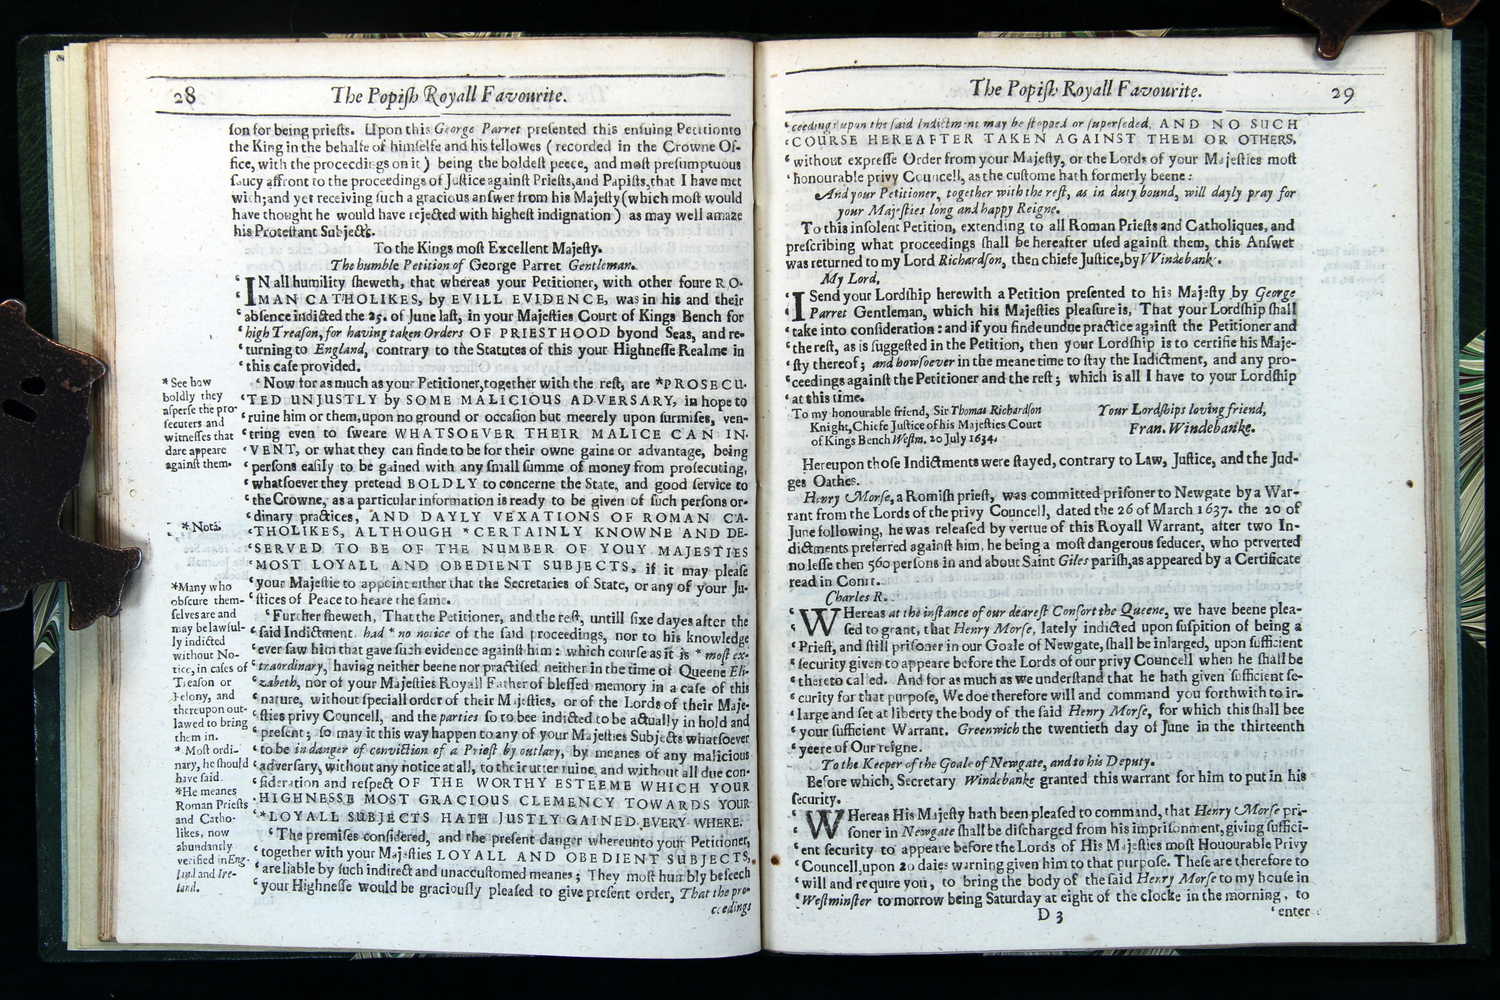 28
The Popiſh Royall Favourite.
ſon for being prieſts. Upon this George Parret preſented this enſuing Petition to
the King in the behalfe of himſelfe and his fellowes (recorded in the Crowne Of-
fice, with the proceedings on it) being the boldeſt peece, and moſt preſumptuous
ſaucy affront to the proceedings of Juſtice againſt Prieſts, and Papiſts, that I have met
with; and yet receiving ſuch a gracious anſwer from his Majeſty (which moſt would
have thought he would have rejected with higheſt indignation) as may well amaze
his Proteſtant Subjects.
To the Kings moſt Excellent Majeſty.
The humble Petition of George Parret Gentleman.
‘IN all humility ſheweth, that whereas your Petitioner, with other foure RO-
‘MAN CATHOLIKES, by EVILL EVIDENCE, was in his and their
‘abſence indicted the 25. of June laſt, in your Majeſties Court of Kings Bench for
‘high Treaſon, for having taken Orders OF PRIESTHOOD byond Seas, and re-
‘turning to England, contrary to the Statutes of this your Highneſſe Realme in
‘this caſe provided.
‘Now for as much as your Petitioner, together with the reſt, are *PROSECU-
‘TED UNJUSTLY by SOME MALICIOUS ADVERSARY, in hope to
‘ruine him or them, upon no ground or occaſion but meerely upon ſurmiſes, ven-
‘tring even to ſweare WHATSOEVER THEIR MALICE CAN IN-
‘VENT, or what they can finde to be for their owne gaine or advantage, being
‘perſons eaſily to be gained with any ſmall ſumme of money from proſecuting,
‘whatſoever they pretend BOLDLY to concerne the State, and good ſervice to
‘the Crowne, as a particular information is ready to be given of ſuch perſons or-
‘dinary practices, AND DAYLY VEXATIONS OF ROMAN CA-
‘THOLIKES, ALTHOUGH *CERTAINLY KNOWNE AND DE-
‘SERVED TO BE OF THE NUMBER OF YOUY MAJESTIES
‘MOST LOYALL AND OBEDIENT SUBJECTS, if it may pleaſe
‘your Majeſtie to appoint either that the Secretaries of State, or any of your Ju-
‘ſtices of Peace to heare the ſame.
‘Further ſheweth, That the Petitioner, and the reſt, untill ſixe dayes after the
‘ſaid Indictment had * no notice of the ſaid proceedings, nor to his knowledge
‘ever ſaw him that gave ſuch evidence againſt him: which courſe as it is * moſt ex-
‘traordinary, having neither beene nor practiſed neither in the time of Queene Eli-
‘zabeth, nor of your Majeſties Royall Father of bleſſed memory in a caſe of this
‘nature, without ſpeciall order of their Majeſties, or of the Lords of their Maje-
‘ſties privy Councell, and the parties ſo to bee indicted to be actually in hold and
‘preſent; ſo may it this way happen to any of your Majeſties Subjects whatſoever
‘to be in danger of conviction of a Prieſt by outlary, by meanes of any malicious
‘adverſary, without any notice at all, to their utter ruine, and without all due con-
‘ſideration and reſpect OF THE WORTHY ESTEEME WHICH YOUR
‘HIGHNESSE MOST GRACIOUS CLEMENCY TOWARDS YOUR
‘*LOYALL SUBJECTS HATH JUSTLY GAINED EVERY WHERE.
‘The premiſes conſidered, and the preſent danger whereunto your Petitioner,
‘together with your Majeſties LOYALL AND OBEDIENT SUBJECTS,
‘are liable by ſuch indirect and unaccuſtomed meanes; They moſt humbly beſeech
‘your Highneſſe would be graciouſly pleaſed to give preſent order, That the pro-
ceedings
* See how
boldly they
aſperſe the pro-
ſecuters and
witneſſes that
dare appeare
againſt them.
*Nota.
*Many who
obſcure them-
ſelves are and
may be lawful-
ly indicted
without No-
tice, in caſes of
Treaſon or
Felony, and
thereupon out-
lawed to bring
them in.
* Moſt ordi-
nary, he ſhould
have ſaid.
*He meanes
Roman Prieſts
and Catho-
likes, now
abundantly
verified in Eng-
land and Ire-
land.
The Popiſh Royall Favourite.
29
‘ceedings upon the ſaid Indictment may be ſtopped or ſuperſeded, AND NO SUCH
‘COURSE HEREAFTER TAKEN AGAINST THEM OR OTHERS,
‘without expreſſe Order from your Majeſty, or the Lords of your Majeſties moſt
‘honourable privy Councell, as the cuſtome hath formerly beene:
And your Petitioner, together with the reſt, as in duty bound, will dayly pray for
your Majeſties long and happy Reigne.
To this inſolent Petition, extending to all Roman Prieſts and Catholiques, and
preſcribing what proceedings ſhall be hereafter uſed againſt them, this Anſwer
was returned to my Lord Richardſon, then chiefe Juſtice, by VVindebank.
My Lord,
‘I Send your Lordſhip herewith a Petition preſented to his Majeſty by George
‘Parret Gentleman, which his Majeſties pleaſure is, That your Lordſhip ſhall
‘take into conſideration: and if you finde undue practice againſt the Petitioner and
‘the reſt, as is ſuggeſted in the Petition, then your Lordſhip is to certifie his Maje-
‘ſty thereof; and howſoever in the meane time to ſtay the Indictment, and any pro-
‘ceedings againſt the Petitioner and the reſt; which is all I have to your Lordſhip
‘at this time.
To my honourable friend, Sir Thomas Richardſon
Knight, Chiefe Juſtice of his Majeſties Court
of Kings Bench Weſtm. 20 July 1634.
Your Lordſhips loving friend,
Fran. Windebanke.
Hereupon thoſe Indictments were ſtayed, contrary to Law, Juſtice, and the Jud-
ges Oathes.
Henry Morſe, a Romiſh prieſt, was committed priſoner to Newgate by a War-
rant from the Lords of the privy Councell, dated the 26 of March 1637. the 20 of
June following, he was releaſed by vertue of this Royall Warrant, after two In-
dictments preferred againſt him, he being a moſt dangerous ſeducer, who perverted
no leſſe then 560 perſons in and about Saint Giles pariſh, as appeared by a Certificate
read in Court.
Charles R.
‘WHereas at the inſtance of our deareſt Conſort the Queene, we have beene plea-
‘ſed to grant, that Henry Morſe, lately indicted upon ſuſpition of being a
‘Prieſt, and ſtill priſoner in our Goale of Newgate, ſhall be inlarged, upon ſufficient
‘ſecurity given to appeare before the Lords of our privy Councell when he ſhall be
‘thereto called. And for as much as we underſtand that he hath given ſufficient ſe-
‘curity for that purpoſe, We doe therefore will and command you forthwith to in-
‘large and ſet at liberty the body of the ſaid Henry Morſe, for which this ſhall bee
‘your ſufficient Warrant. Greenwich the twentieth day of June in the thirteenth
‘yeere of Our reigne.
To the Keeper of the Goale of Newgate, and to his Deputy.
Before which, Secretary Windebanke granted this warrant for him to put in his
ſecurity.
‘WHereas His Majeſty hath been pleaſed to command, that Henry Morſe pri-
‘ſoner in Newgate ſhall be diſcharged from his impriſonment, giving ſuffici-
‘ent ſecurity to appeare before the Lords of His Majeſties moſt Honourable Privy
‘Councell, upon 20 daies warning given him to that purpoſe. Theſe are therefore to
‘will and require you, to bring the body of the ſaid Henry Morſe to my houſe in
‘Weſtminſter to morrow being Saturday at eight of the clocke in the morning, to
D 3
‘enter